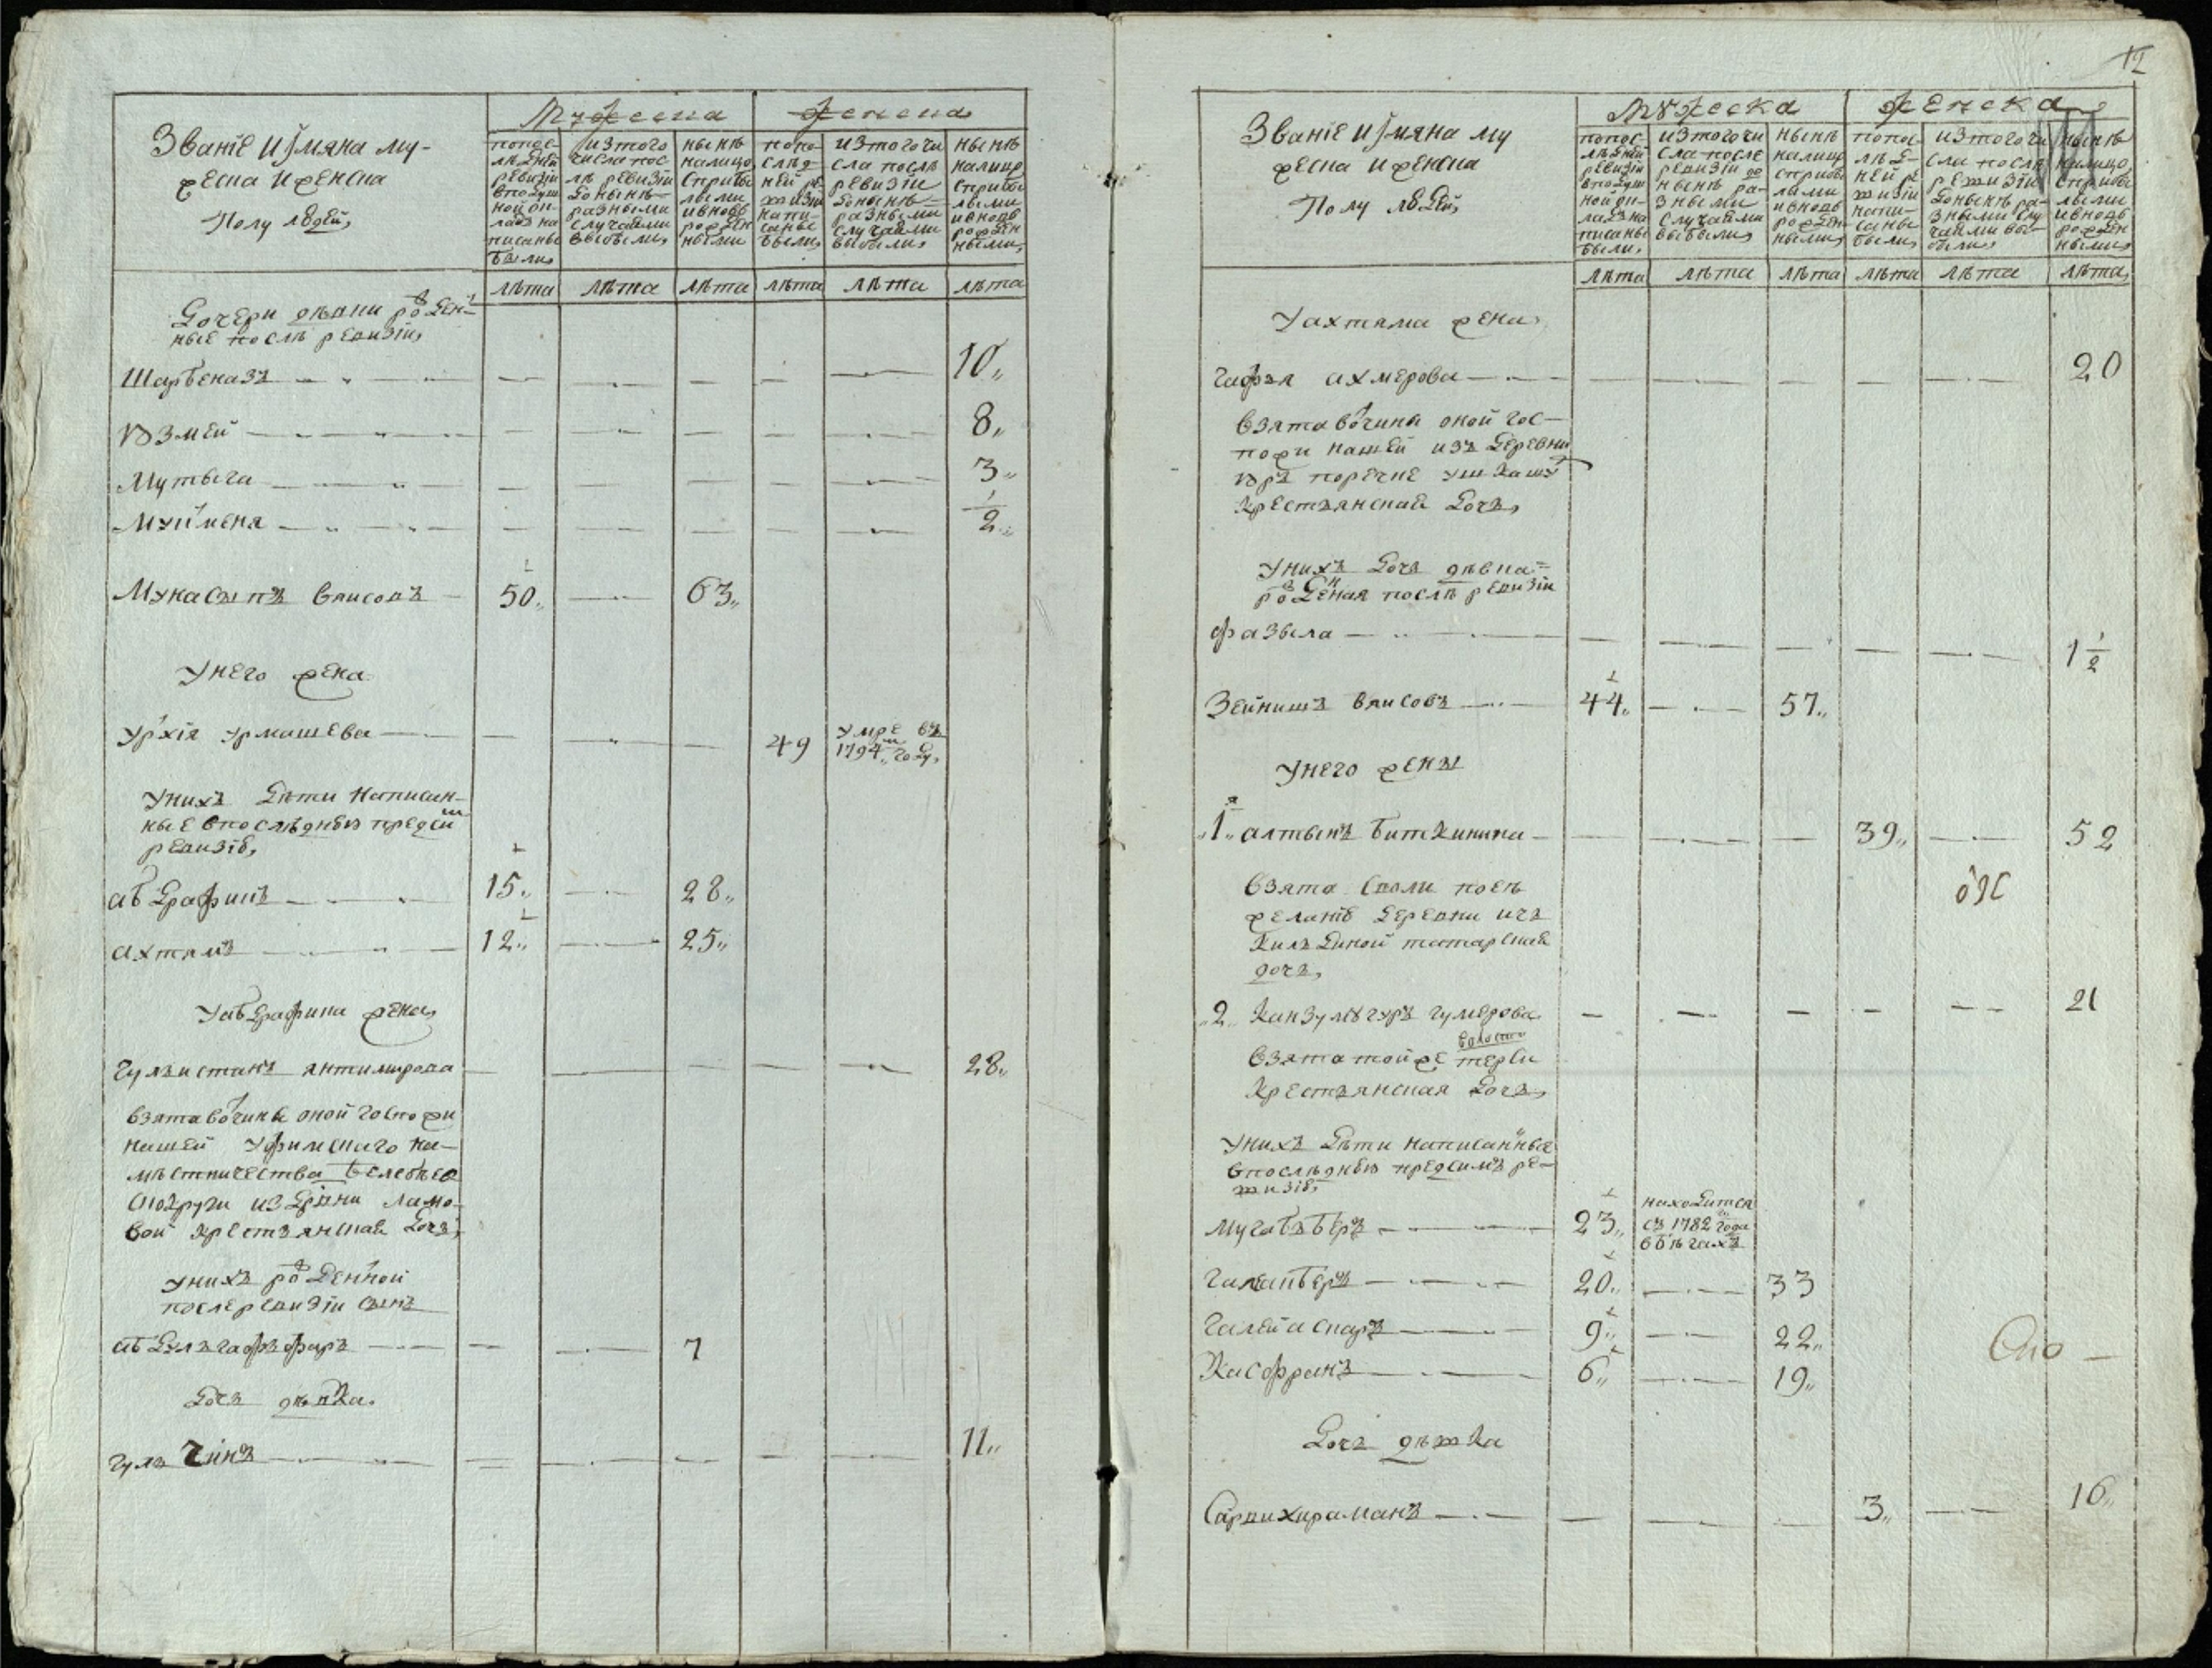 Званіе и ӱмяна му-
жеска и женска
Полу людей,
Мужеска
женска
попос-
лѣдней
ревизіи
вподуш
ной ок-
ладъ на
писаны
были,
изтого
числа пос-
лѣ ревизіи
доныне
разными
случаями
выбыли,
нынѣ
налицо
сприбы
лыми
ивновь
рожден
ными
попо-
слѣд-
ней ре
визіи
напи-
саны
были,
изтогочи
сла послѣ
ревизіи
доныне
разными
случаями
выбыли,
нынѣ
налицо
сприбы
лыми
ивновь
рожден
ными,
лѣта лѣта лѣта лѣта лѣта лѣта
Дочери дѣвки рожден-
ные послѣ ревизіи,
Шарбеназъ 10
Юзмей 8
Мутыга 3
Муймена 1/2
Мукасыпъ ваисовъ 50 63
Унего жена
Урхія Урмашева 49 умре въ
1794м году,
Унихъ дѣти написан-
ные впослѣднюю предсим
ревизію,
абдрафикъ 15 28
ахтямъ 12 25
Уабдрафика жена,
Гульистанъ янтимирова 28
взята вочины оной госпожи
нашей Уфимскаго на-
мѣстничества Белебѣев
ской округи из дрвни Ламо-
вой крестьянская дочь,
унихъ рожденной
после ревизіи сынъ
абдулъгафъфаръ 7
дочь дѣвка.
гуль Чинъ 11
12
Званіе и ӱмяна му
жеска и женска
Полу людей,
Мужеска
женска
попос-
лѣдней
ревизіи
вподуш
ной ок-
ладъ на
писаны
были,
изтогочи
сла после
ревизіи до
нынѣ ра-
зными
случаями
выбыли,
нынѣ
налицо
сприбы
лыми
ивновь
рожден
ными,
попос-
лѣд-
ней ре
визіи
напи-
саны
были,
изтогочи
сла послѣ
ревизіи
донынѣ ра-
зными слу
чаями вы-
были,
нынѣ
налицо,
сприбы
лыми
ивновь
рожден
ными,
лѣта лѣта лѣта лѣта лѣта лѣта
Уахтяма жена,
Гафзя ахмерова 20
взята вочины оной гос-
пожи нашей изъ деревни
при поречке ушкашу
крестьянская дочь,
Унихъ дочь дѣвка
рожденая послѣ ревизіи
фазыла 1 1/2
Зейнишъ ваисовъ 44 57
Унего жены
1я алтынъ биткинина 39 52
взята своли поеѣ
желанію деревни ичь
кильдиной татарская
дочь,
2 Канзулюгуръ гумерова 21
волости
взята тойже терси
крестьянская дочь,
Унихъ дѣти написанные
впослѣднюю предсимъ ре-
визію,
мугабъбѣръ 23 находитса
съ 1782го года
вбѣгахъ
Галеапберъ 20 33
Галейаскаръ 9 22
Касфранъ 6 19
Дочь дѣвка
Сарвихираманъ 3 16